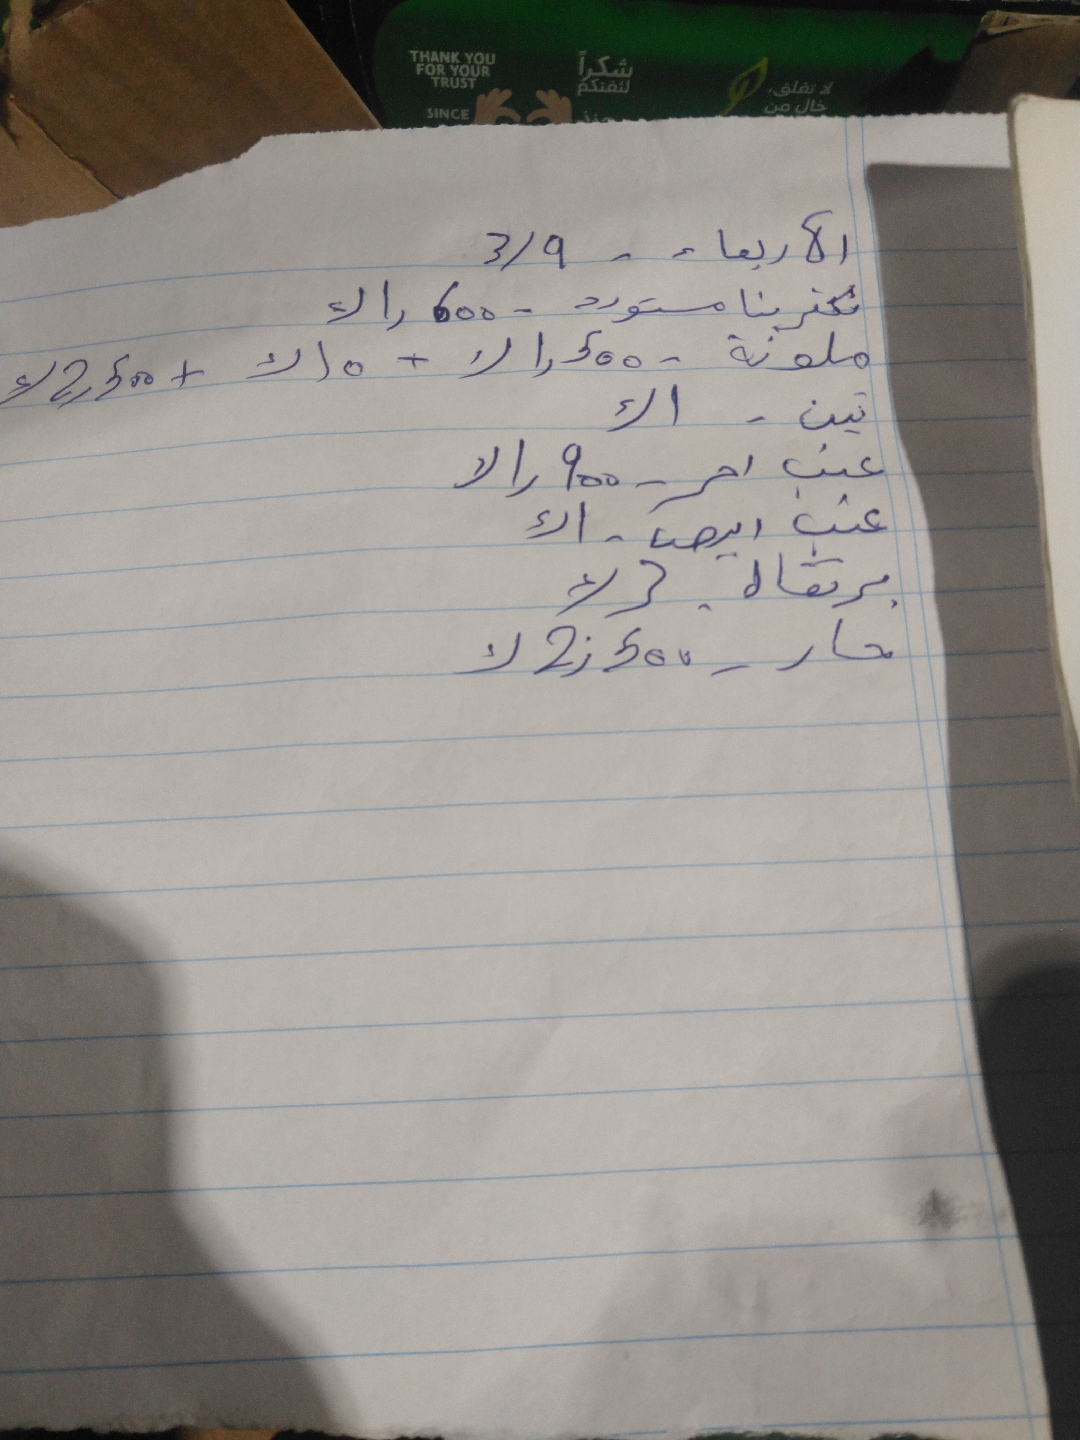 THANK YOU
FOR YOUR
TRUST
SINCE
شكراً
لثقتكم
لا تقلق،
خالٍ من
الأربعاء - - 3/9
نكتربنا مستورد - 600,1 ك
ملونة - 500,1 ك + 10 ك + 2,500 ك
تين - 1 ك
عنب احمر - 900,1 ك
عنب ابيض - 1 ك
برتقال - 3 ك
حار - 2,500 ك